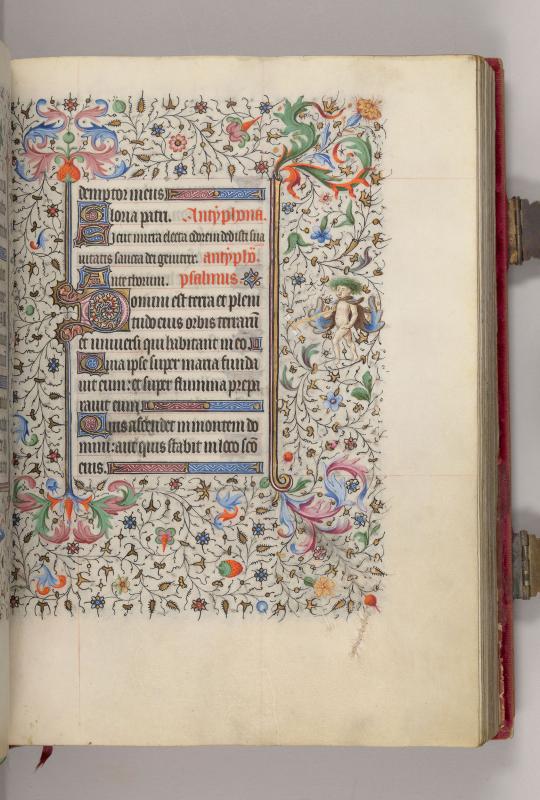 demptor meus
Gloria patri. Antyphona.
Sicut mirra electa odorem dedisti sua
uitatis sancta dei genitrix. antypho.
Ante thorum. psalmus
Domini est terra et pleni
tudo eius orbis terrarū
et uniuersi qui habitant in eo
Quia ipse super maria funda
uit eum: et super flumina prepa
rauit eum
Quis ascendet in montem do
mini: aut quis stabit in loco scō
eius.